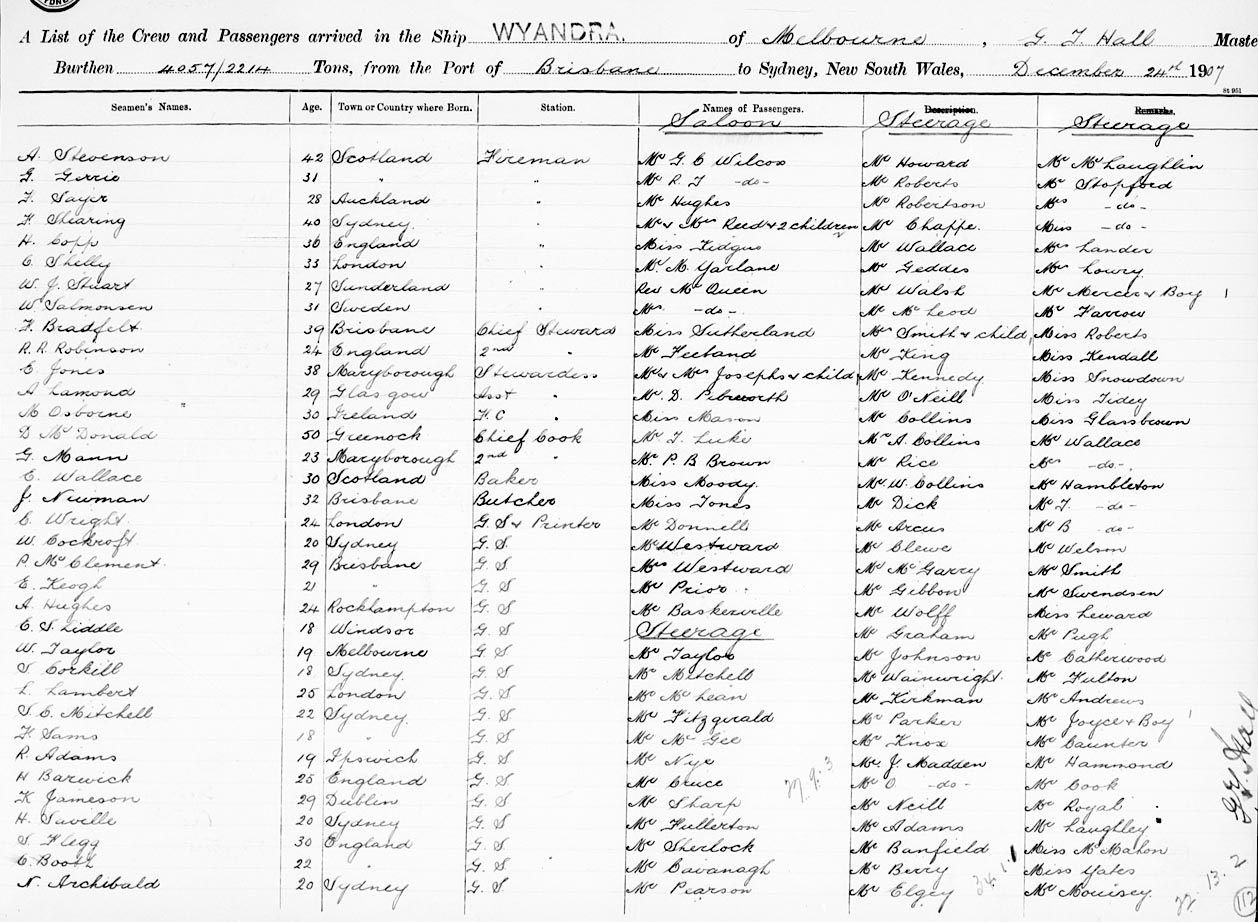 A List of the Crew and Passengers arrived in the Ship WYANDRA. of Melbourne, G. T. Hall Maste
Burthen 4057/2214 Tons, from the Port of Brisbane to Sydney, New South Wales, December 24th 1907
St 951
Seamen's Names. Age. Town or Country where Born. Station. Names of Passengers. Description. Remarks.
Saloon Steerage Steerage
A. Stevenson 42 Scotland Fireman Mr G. C Wilcox Mr Howard Mr McLaughlin
G. Gerrie 31 " " Mr R. T -do- Mr Roberts Mr Stopford
F. Sayer 28 Auckland " Mr Hughes Mr Robertson Mrs -do-
F. Shearing 40 Sydney. " Mr & Mrs Reed & 2 children Mr Chappe. Miss -do-
H. Copp 36 England " Miss Fidgus Mr Wallace Mrs Lander
C. Shilly 33 London " Mr M. Yarlane Mr Geddes Mrs Lowry
W. J. Stuart 27 Sunderland " Rev McQueen Mr Walsh Mr Mercer & Boy 1
W. Salmonsen 31 Sweden " Mrs -do- Mr McLeod Mr Farrow
F. Bradfelt 39 Brisbane Chief Steward Miss Sutherland Mrs Smith & child 1 Miss Roberts
R. R. Robinson 24 England 2nd " Mr Feeland Mr King Miss Kendall
E Jones 38 Maryborough Stewardess Mr & Mrs Josephs & child 1 Mr Kennedy. Miss Snowdown
A Lamond 29 Glasgow Asst " Mr. D. Pebworth Mr O'Neill Miss Tidey
M Osborne 30 Ireland F. C " Miss Mason Mr Collins Miss Glassbrown
D McDonald 50 Greenock Chief Cook Mr T. Luke Mr A. Collins Mr Wallace
G. Mann 23 Maryborough 2nd " Mr. P. B Brown Mr Rice Mrs -do-.
C. Wallace 30 Scotland Baker Miss Moody. Mr W. Collins Mr Hambleton
J. Newman 32 Brisbane Butcher Miss Jones Mr Dick Mr J. -do-
E. Wright. 24 London G. S & Printer Mr Donnell Mr Arcus Mr B do-
W. Cockroft. 20 Sydney G. S. Mr Westward Mr Clewe Mr Welson
P. McClement. 29 Brisbane G. S Mrs Westward Mr McGarry Mr Smith
E. Keogh 21 " G. S Mr Prior Mr Gibbon Mr Swendsen
A. Hughes 24 Rockhampton G. S Mr Baskerville Mr Wolff Miss Leward
C. S. Liddle 18 Windsor G. S Steerage Mr Graham Mr Pugh
W. Taylor 19 Melbourne G. S Mr Taylor Mr Johnson Mr Catherwood
S. Corkill 18 Sydney. G. S Mr Mitchell Mr Wainwright. Mr Fulton
L. Lambert 25 London G. S Mr McLean Mr Kirkman Mr Andrews
S. C. Mitchell 22 Sydney. G. S Mr Fitzgerald Mr Parker Mr Joyce & Boy 1
F. Sams 18 " G. S Mr McGee Mr Knox Mr Caunter
R. Adams 19 Ipswich G. S Mr Nye Mr. J. Madden Mr Hammond
H Barwick 25 England G. S Mr Cruce Mr O -do- Mr Cook
K. Jameson 29 Dublin G. S Mr Sharp Mr Neill Mr Royal
H. Saville 20 Sydney G. S Mr Fullerton Mr Adams Mr Laughley
S. Flegg 30 England G. S Mr Sherlock Mr Banfield Miss McMahon
C. Booth 22 " G. S Mr Cavanagh Mr Berry Miss Yates
N. Archibald 20 Sydney G. S Mr Pearson Mr Elgey Mr Mouisey.
77. 9. 3
34. 1. 1
77 13. 2
G. T. Hall
112